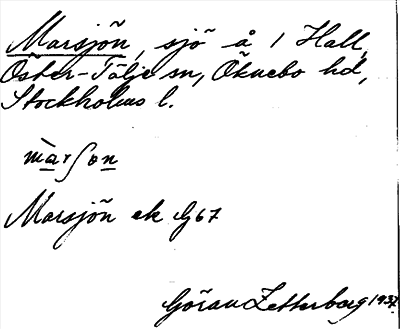 Marsjön, sjö å 1 Hall,
Öster-Tälje sn, Öknebo hd,
Stockholms l.
màrʃon
Marsjön ek G67
Göran Zetterborg 1937.